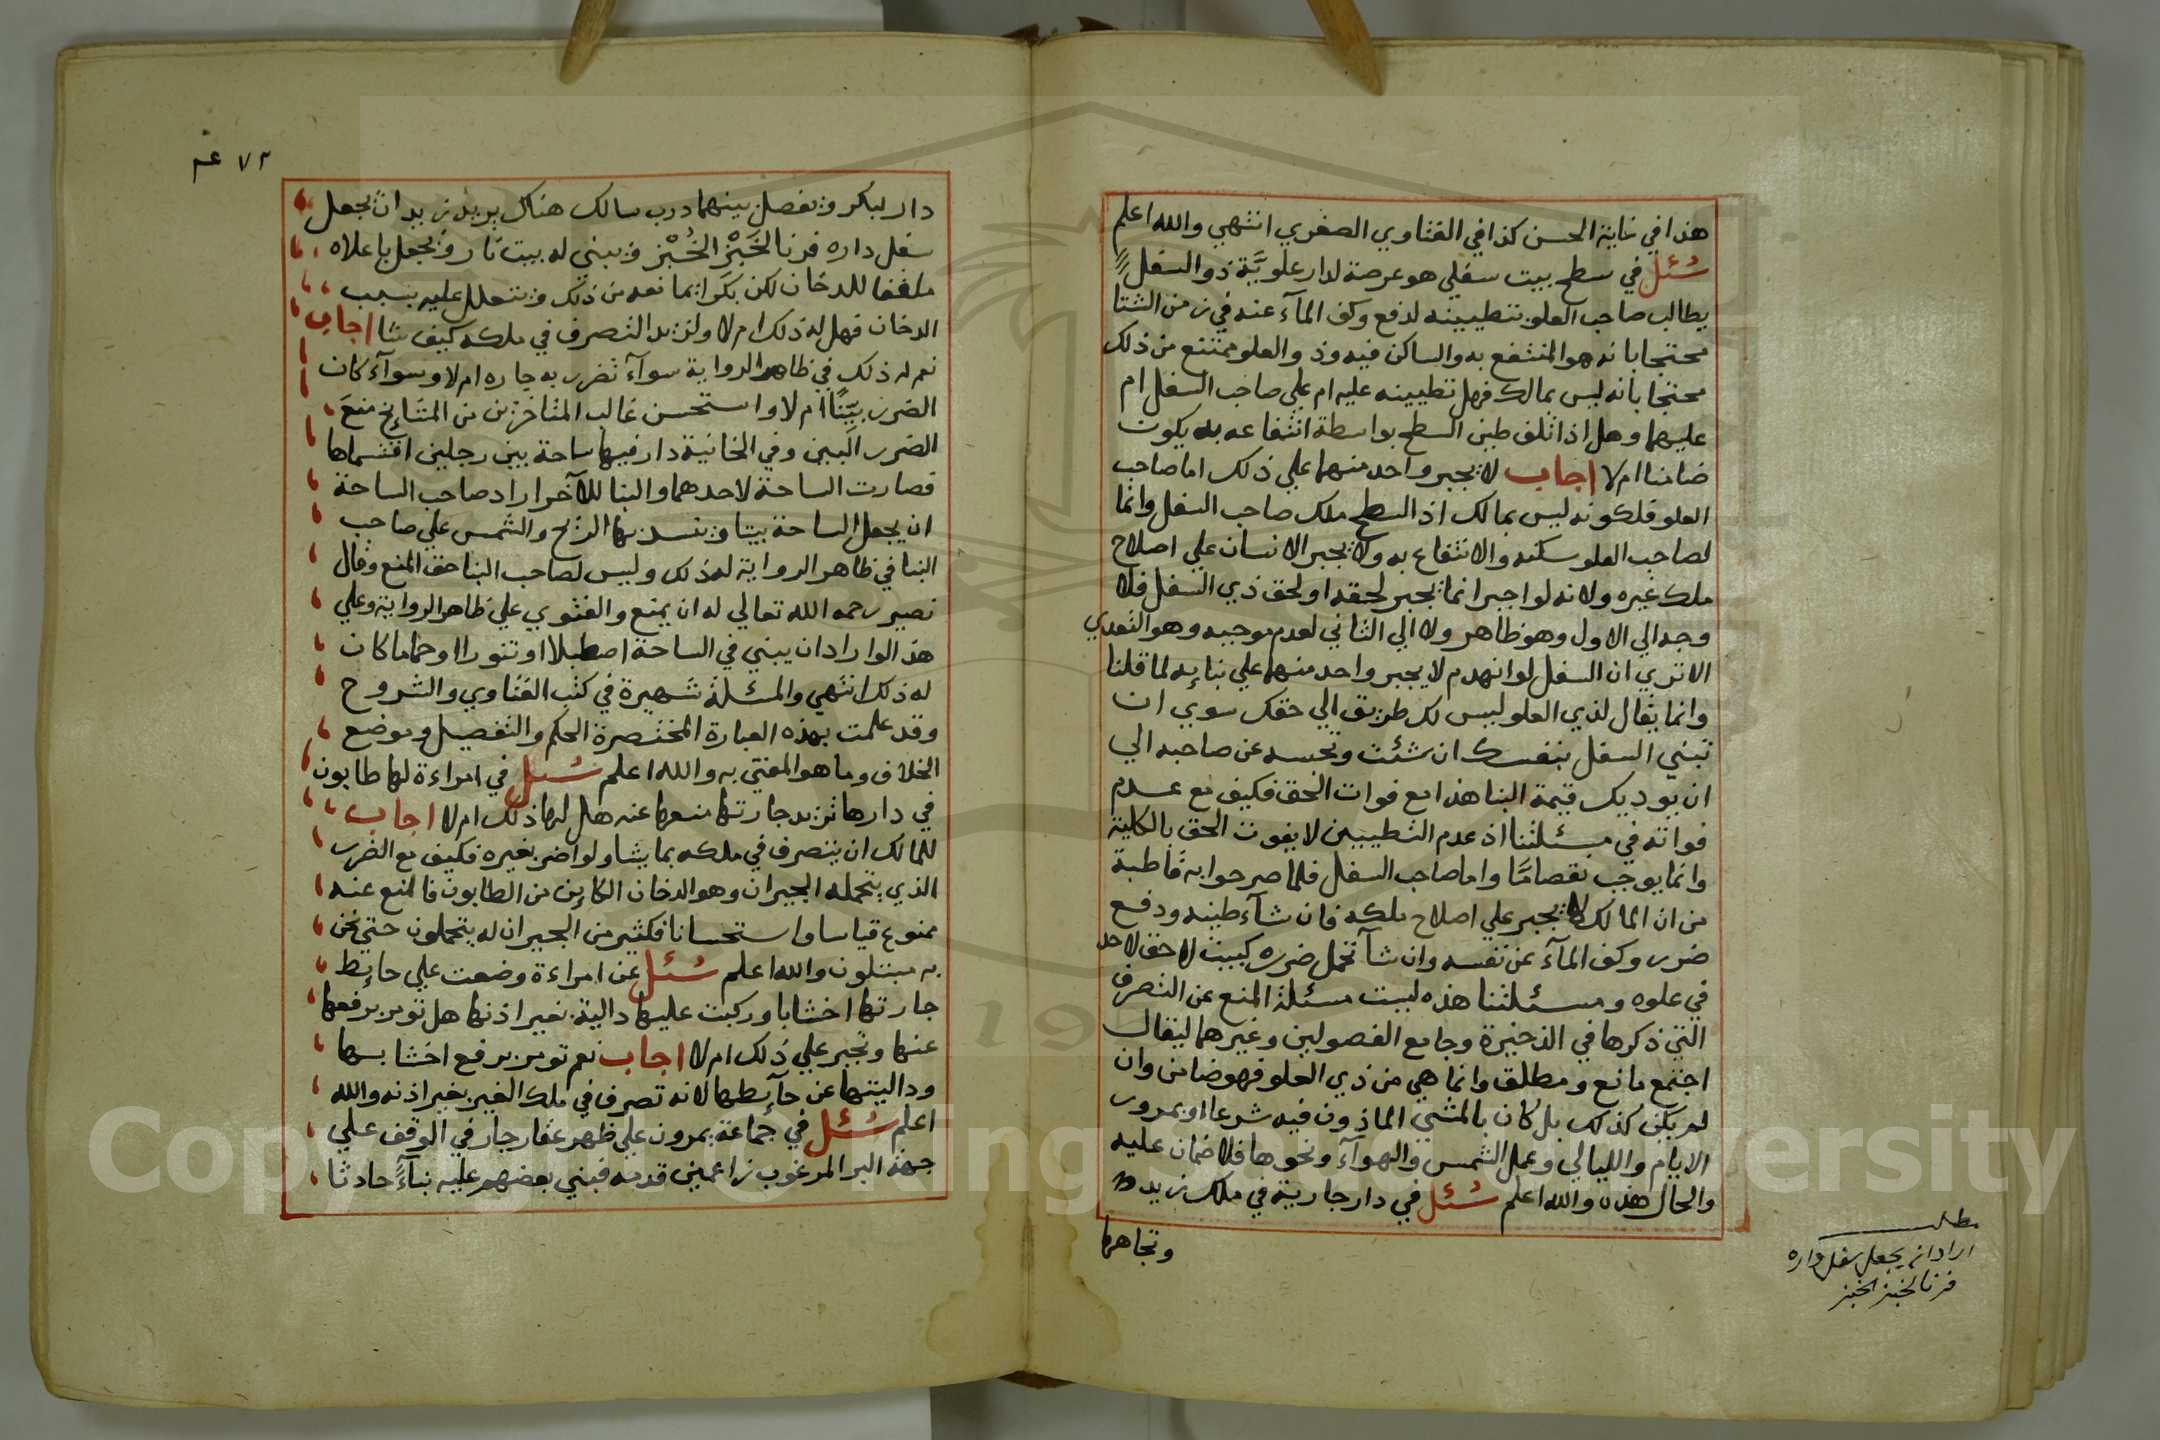 هذا في غاية الحسن كذا في الفتاوي الصغري انتهي والله اعلم
سُئل في سطح بيت سفلي هو عرصة لدار علويَّة ذو السفل
يطالب صاحب العلو بتطيينه لدفع وكف المآء عنه في زمن الشتا
محتجا بانه هو المنتفع به والساكن فيه وذو العلو ممتنع من ذلك
محتجا بانه ليس بمالك فهل تطيينه عليه ام علي صاحب السفل ام
عليهما وهل اذا تلف طين السطح بواسطة انتفاعه به يكون
ضامنا ام لا اجاب لا يجبر واحد منهما علي ذلك اما صاحب
العلو فلكونه ليس بمالك اذ السطح ملك صاحب السفل وانما
لصاحب العلو سكنه والانتفاع به ولا يجبر الانسان علي اصلاح
ملك غيره ولانه لو اجبر انما يجبر لحقه او لحق ذي السفل فلا
وجه الي الاول وهو ظاهر ولا الي الثاني لعدم موجبه وهو التعدي
الا تري ان السفل لو انهدم لا يجبر واحد منهما علي بنايه لما قلنا
وانما يقال لذي العلو ليس لك طريق الي حقك سوي ان
تبني السفل بنفسك ان شئت وتحبسه عن صاحبه الي
ان يوديك قيمة البنا هذا مع فوات الحق فكيف مع عدم
فواته في مسئلتنا اذ عدم التطيين لا يفوت الحق بالكلية
وانما يوجب نقصا مّا واما صاحب السفل فلما صرحوا به قاطبة
من ان المالك لا يجبر علي اصلاح ملكه فان شآء طينه ودفع
ضرر وكف المآء عن نفسه وان شآ تحمل ضرره كبيت لا حق لاحد
في علوه ومسئلتنا هذه ليست مسئلة المنع عن التصرف
التي ذكرها في الذخيرة وجامع الفصولين وغيرهما ليقال
اجتمع مانع ومطلق وانما هي من ذي العلو فهو ضامن وان
لم يكن كذلك بل كان بالمشي الماذون فيه شرعا او بمرور
الايام والليالي وعمل الشمس والهوآء ونحوها فلا ضمان عليه
والحال هذه والله اعلم سُئل في دار جارية في ملك زيد
وتجاهها
مطلب
اراد ان يجعل سفل داره
فرنا لخبز الخبز
٧٣
دار لبكر ويفصل بينهما درب سالك هناك يريد زيد ان يجعل
سفل داره فرنا لخَبْز الخُبْز ويبني له بيت نار ويجعل باعلاه
ملقفا للدخان لكن بكرا يمانعه من ذلك ويتعلل عليه بسبب
الدخان فهل له ذلك ام لا ولزيد التصرف في ملكه كيف شا اجاب
نعم له ذلك في ظاهر الرواية سوآء تضرر به جاره ام لا وسوآء كان
الضرر بيِّنًا ام لا واستحسن غالب المتاخرين من المشايخ منعَ
الضرر البيِّن وفي الخانية دار فيها ساحة بين رجلين اقتسماها
فصارت الساحة لاحدهما والبنا للآخر اراد صاحب الساحة
ان يجعل الساحة بيتا ويسد بها الريح والشمس علي صاحب
البنا في ظاهر الرواية له ذلك وليس لصاحب البنا حق المنع وقال
نصير رحمه الله تعالي له ان يمنع والفتوي علي ظاهر الرواية وعلي
هذا لو اراد ان يبني في الساحة اصطبلا او تنورا او حماما كان
له ذلك انتهي والمسئلة شهيرة في كتب الفتاوي والشروح
وقد علمت بهذه العبارة المختصرة الحكم والتفصيل وموضع
الخلاف وما هو المفتي به والله اعلم سُئل في امراءة لها طابون
في دارها تريد جارتها منعها عنه هل لها ذلك ام لا اجاب
للمالك ان يتصرف في ملكه بما يشا ولو اضر بغيره فكيف مع الضرر
الذي يتحمله الجيران وهو الدخان الكاين من الطابون فالمنع عنه
ممنوع قياسا واستحسانا فكثير من الجيران له يتحملون حتي نحن
به مبتلون والله اعلم سُئل عن امراءة وضعت علي حايط
جارتها اخشابا وركبت عليها دالية بغير اذنها هل تومر برفعها
عنها وتجبر علي ذلك ام لا اجاب نعم تومر برفع اخشابها
وداليتها عن حآيطها لانه تصرف في ملك الغير بغير اذنه والله
اعلم سُئل في جماعة يمرون علي ظهر عقار جار في الوقف علي
جهة البر المرغوب زاعمين قدمه فبني بعضهم عليه بنآءً حادثا
Copyright © King Saud University